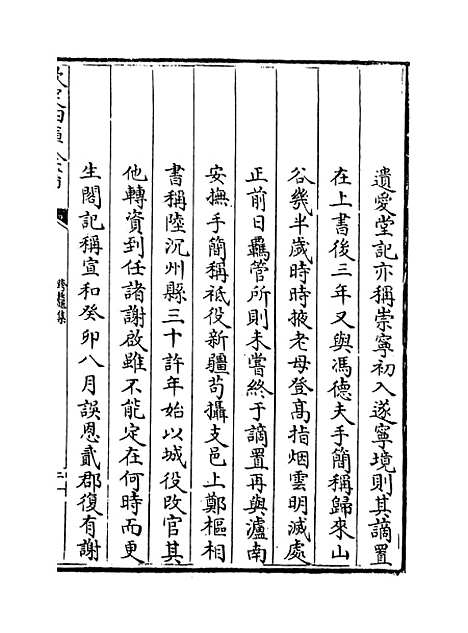 遺愛堂記亦稱崇寧初入遂寧境則其謫置
在上書後三年又與馮德夫手簡稱歸來山
谷幾半歲時時掖老母登髙指烟雲明滅處
正前日羈管所則未嘗終于謫置再與瀘南
安撫手簡稱祗役新疆茍攝支邑上鄭樞相
書稱陸沉州縣三十許年始以城役改官其
他轉資到任諸謝啟雖不能定在何時而更
生閣記稱宣和癸卯八月誤恩貳郡復有謝
欽定四庫全書
跨鼇集